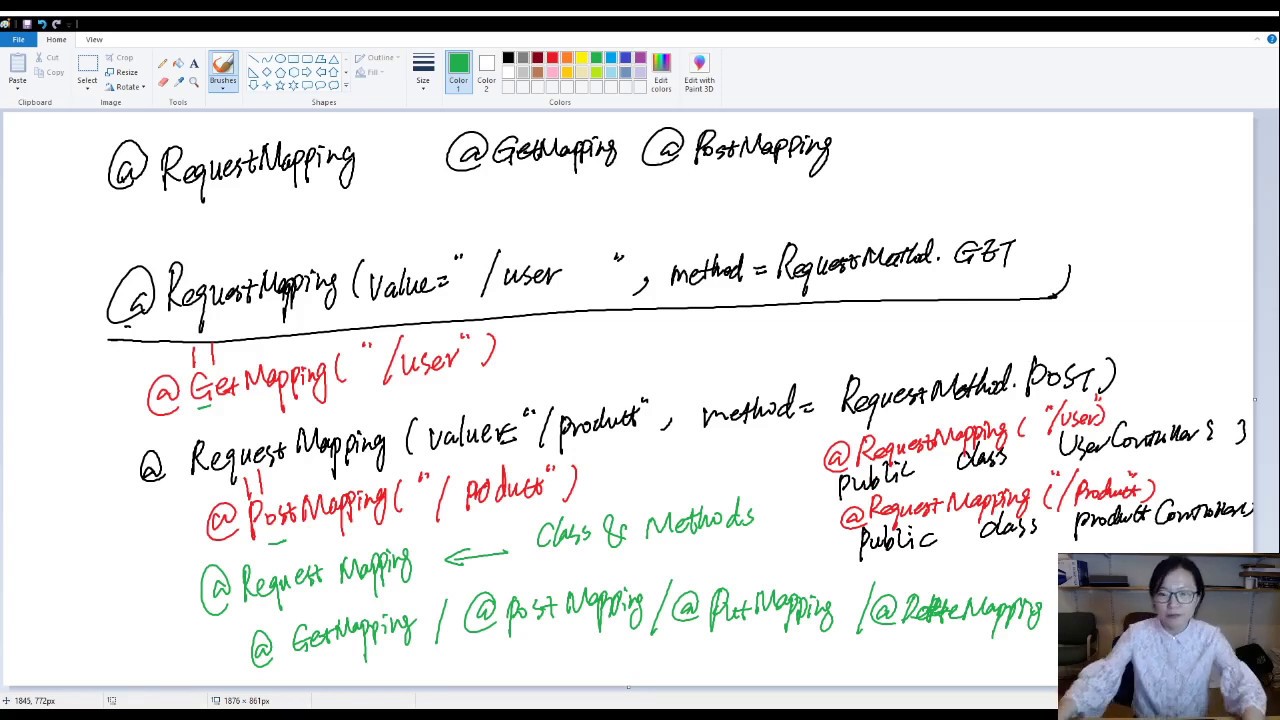 File Home View
Cut
Copy
Paste
Clipboard
Crop
Resize
Rotate
Select
Image
Tools
Brushes
Outline
Fill
Shapes
Size
Color 1
Color 2
Edit colors
Colors
Edit with Paint 3D
@ RequestMapping @ GetMapping @ PostMapping
@ RequestMapping (value="/user ", method = RequestMethod. GET )
@ GetMapping( "/user" )
@ Request Mapping (value="/product", method = RequestMethod. POST)
@ PostMapping( "/product" )
@RequestMapping ("/user")
public class UserController { }
@RequestMapping ("/product")
public class productController{
@ Request Mapping ← Class & Methods
@ GetMapping / @ Post Mapping / @ PutMapping / @ DeleteMapping
1845, 772px 1876 × 861px